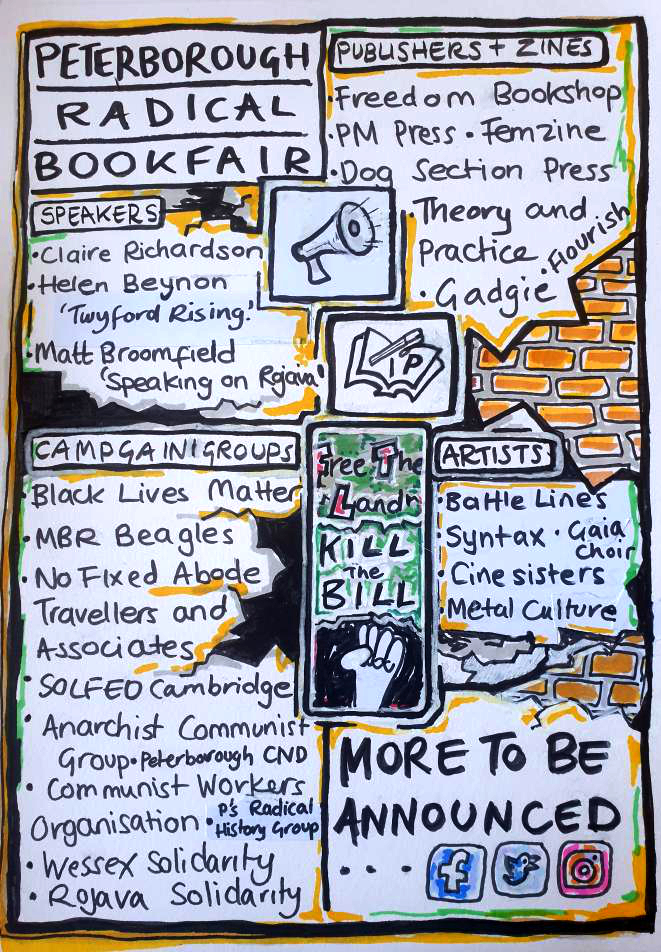 PETERBOROUGH
RADICAL
BOOKFAIR
SPEAKERS
·Claire Richardson
·Helen Beynon
'Twyford Rising.'
·Matt Broomfield
'Speaking on Rojava'
PUBLISHERS + ZINES
·Freedom Bookshop
·PM Press · Femzine
·Dog Section Press
·Theory and
Practice · Flourish
· Gadgie
IP
CAMPGAIN GROUPS
·Black Lives Matter
·MBR Beagles
·No Fixed Abode
Travellers and
Associates
·SOLFED Cambridge
·Anarchist Communist
Group · Peterborough CND
·Communist Workers
Organisation · P's Radical
History Group
·Wessex Solidarity
·Rojava Solidarity
Free The
Land
KILL
THE
BILL
ARTISTS
·Battle Lines
·Syntax · Gaia
choir
·Cinesisters
·Metal Culture
MORE TO BE
ANNOUNCED
. . . f